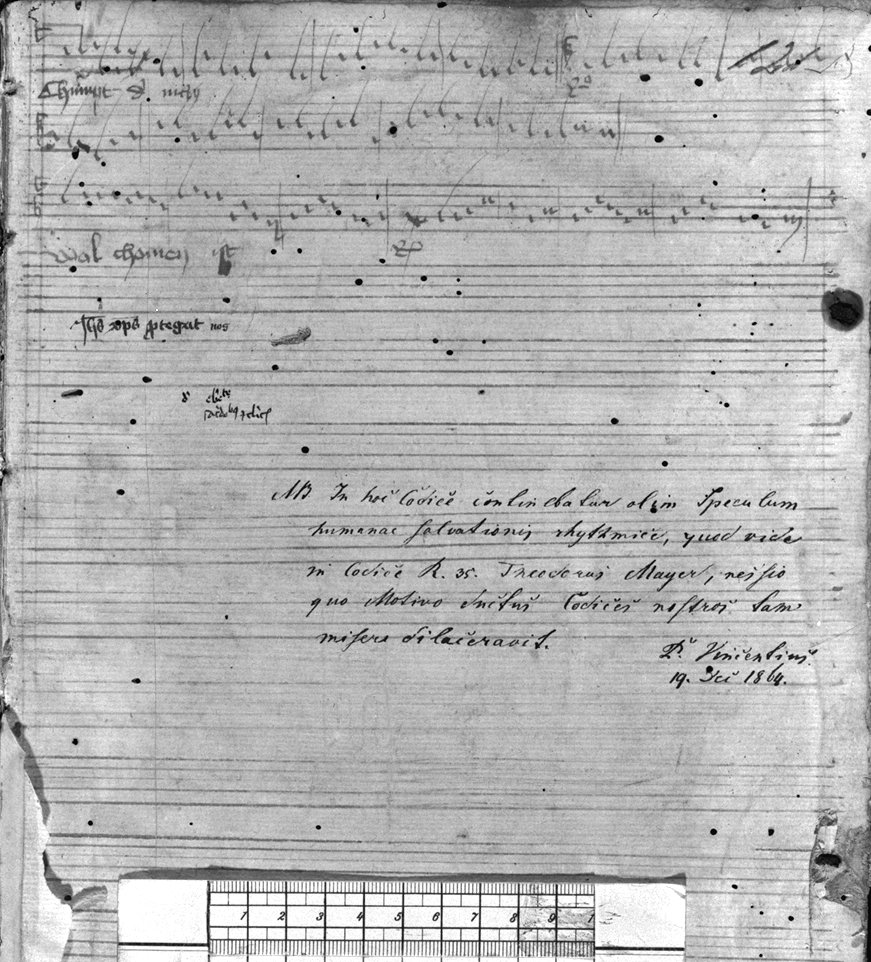 wol chomen ist
Ihs xps ptegat nos
NB In hoc Codice continebatur olim Speculum
humanae salvationis rhythmice, quod vide
in Codice R. 35. Theodorus Mayer, nescio
quo Motivo ductus Codices nostros tam
misere dilaceravit.
P. Vincentius.
19. 1864.
1 2 3 4 5 6 7 8 9 1